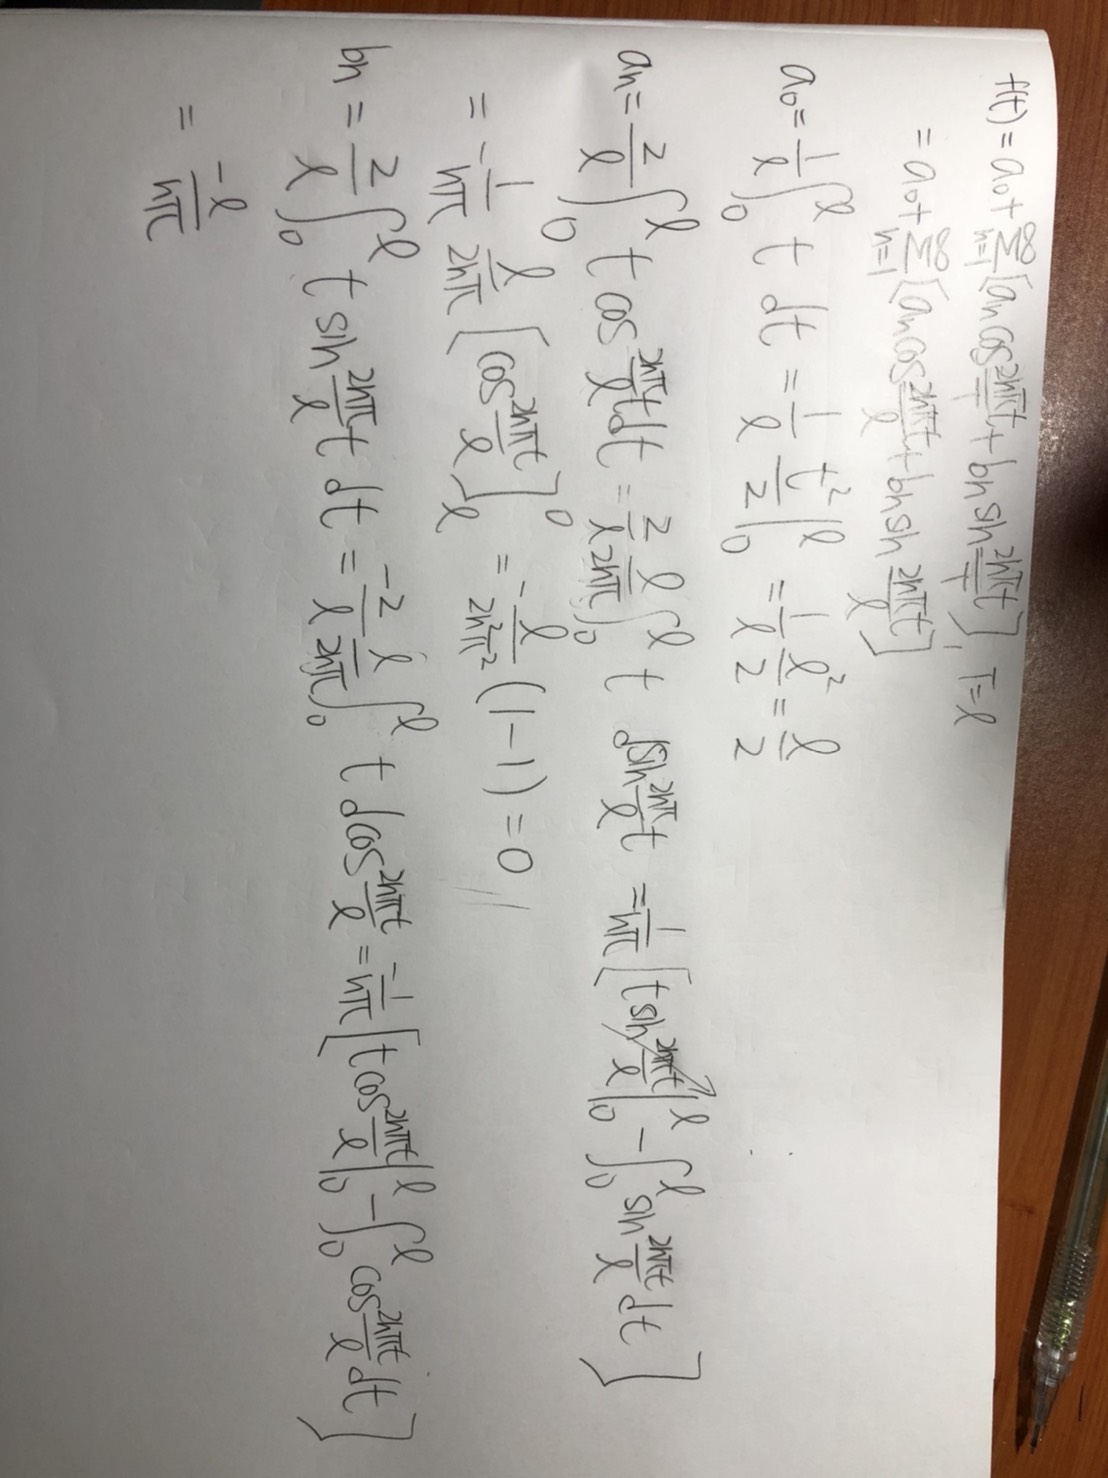 f(t) = a₀ + ∑_{n=1}^{∞} [aₙ cos \frac{2nπt}{T} + bₙ sin \frac{2nπt}{T}], T = ℓ
= a₀ + ∑_{n=1}^{∞} [aₙ cos \frac{2nπt}{ℓ} + bₙ sin \frac{2nπt}{ℓ}]
a₀ = \frac{1}{ℓ} ∫_0^ℓ t dt = \frac{1}{ℓ} \frac{t²}{2} |_0^ℓ = \frac{1}{ℓ} \frac{ℓ²}{2} = \frac{ℓ}{2}
aₙ = \frac{2}{ℓ} ∫_0^ℓ t cos \frac{2nπ}{ℓ} t dt = \frac{2}{ℓ} \frac{ℓ}{2nπ} ∫_0^ℓ t d sin \frac{2nπ}{ℓ} t = \frac{1}{nπ} [t sin \frac{2nπt}{ℓ} |_0^ℓ - ∫_0^ℓ sin \frac{2nπt}{ℓ} dt]
= -\frac{1}{nπ} \frac{ℓ}{2nπ} [cos \frac{2nπt}{ℓ}]_ℓ^0 = -\frac{ℓ}{2n²π²} (1-1) = 0
bₙ = \frac{2}{ℓ} ∫_0^ℓ t sin \frac{2nπ}{ℓ} t dt = \frac{-2}{ℓ} \frac{ℓ}{2nπ} ∫_0^ℓ t d cos \frac{2nπt}{ℓ} = \frac{-1}{nπ} [t cos \frac{2nπt}{ℓ} |_0^ℓ - ∫_0^ℓ cos \frac{2nπt}{ℓ} dt]
= \frac{-ℓ}{nπ}